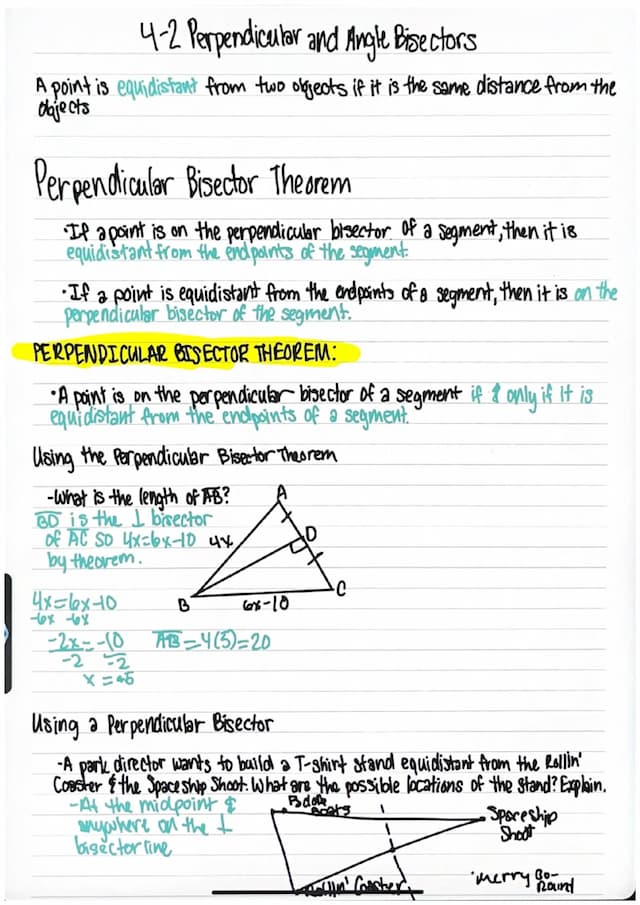 4-2 Perpendicular and Angle Bisectors
A point is equidistant from two objects if it is the same distance from the
objects
Perpendicular Bisector Theorem
•If a point is on the perpendicular bisector of a segment, then it is
equidistant from the endpoints of the segment.
•If a point is equidistant from the endpoints of a segment, then it is on the
perpendicular bisector of the segment.
PERPENDICULAR BISECTOR THEOREM:
•A point is on the perpendicular bisector of a segment if & only if it is
equidistant from the endpoints of a segment.
Using the Perpendicular Bisector Theorem
-What is the length of AB?
BD is the ⊥ bisector
of AC so 4x=6x-10
by theorem.
A
4x
D
C
B
6x-10
4x=6x-10
-6x -6x
-2x=-10
-2 -2
x=5
AB=4(5)=20
Using a Perpendicular Bisector
-A park director wants to build a T-shirt stand equidistant from the Rollin'
Coaster & the Spaceship Shoot. What are the possible locations of the stand? Explain.
-At the midpoint &
anywhere on the ⊥
bisector line
Paddle
boats
Spaceship
Shoot
Rollin' Coaster
•Merry Go-
Round